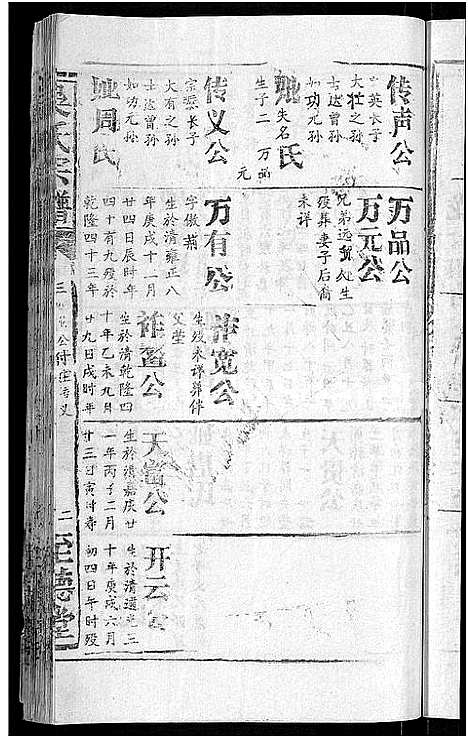 传声公
英长子
大壮之孙
士达曾孙
如功元孙
妣 失名 氏
生子二 万品
元
传义公
宗燕长子
大有之孙
士达曾孙
如功元孙
妣周氏
万品公
万元公
兄弟远 生
殁葬妻子后裔
未详
万有公
字傲
生於清雍正八
年庚戌十一月
廿四日辰时年
四十有九殁於
乾隆四十三年
祚宽公
生殁未详葬伴
父茔
祚 公
生於清乾隆四
十年乙未九月
廿九日戌时年
天富公
生於清嘉庆廿
一年丙子二月
廿三日寅时寿
开云公
生於清道光三
十年庚戌六月
初四日午时殁
吴氏宗谱
三
二
至德堂